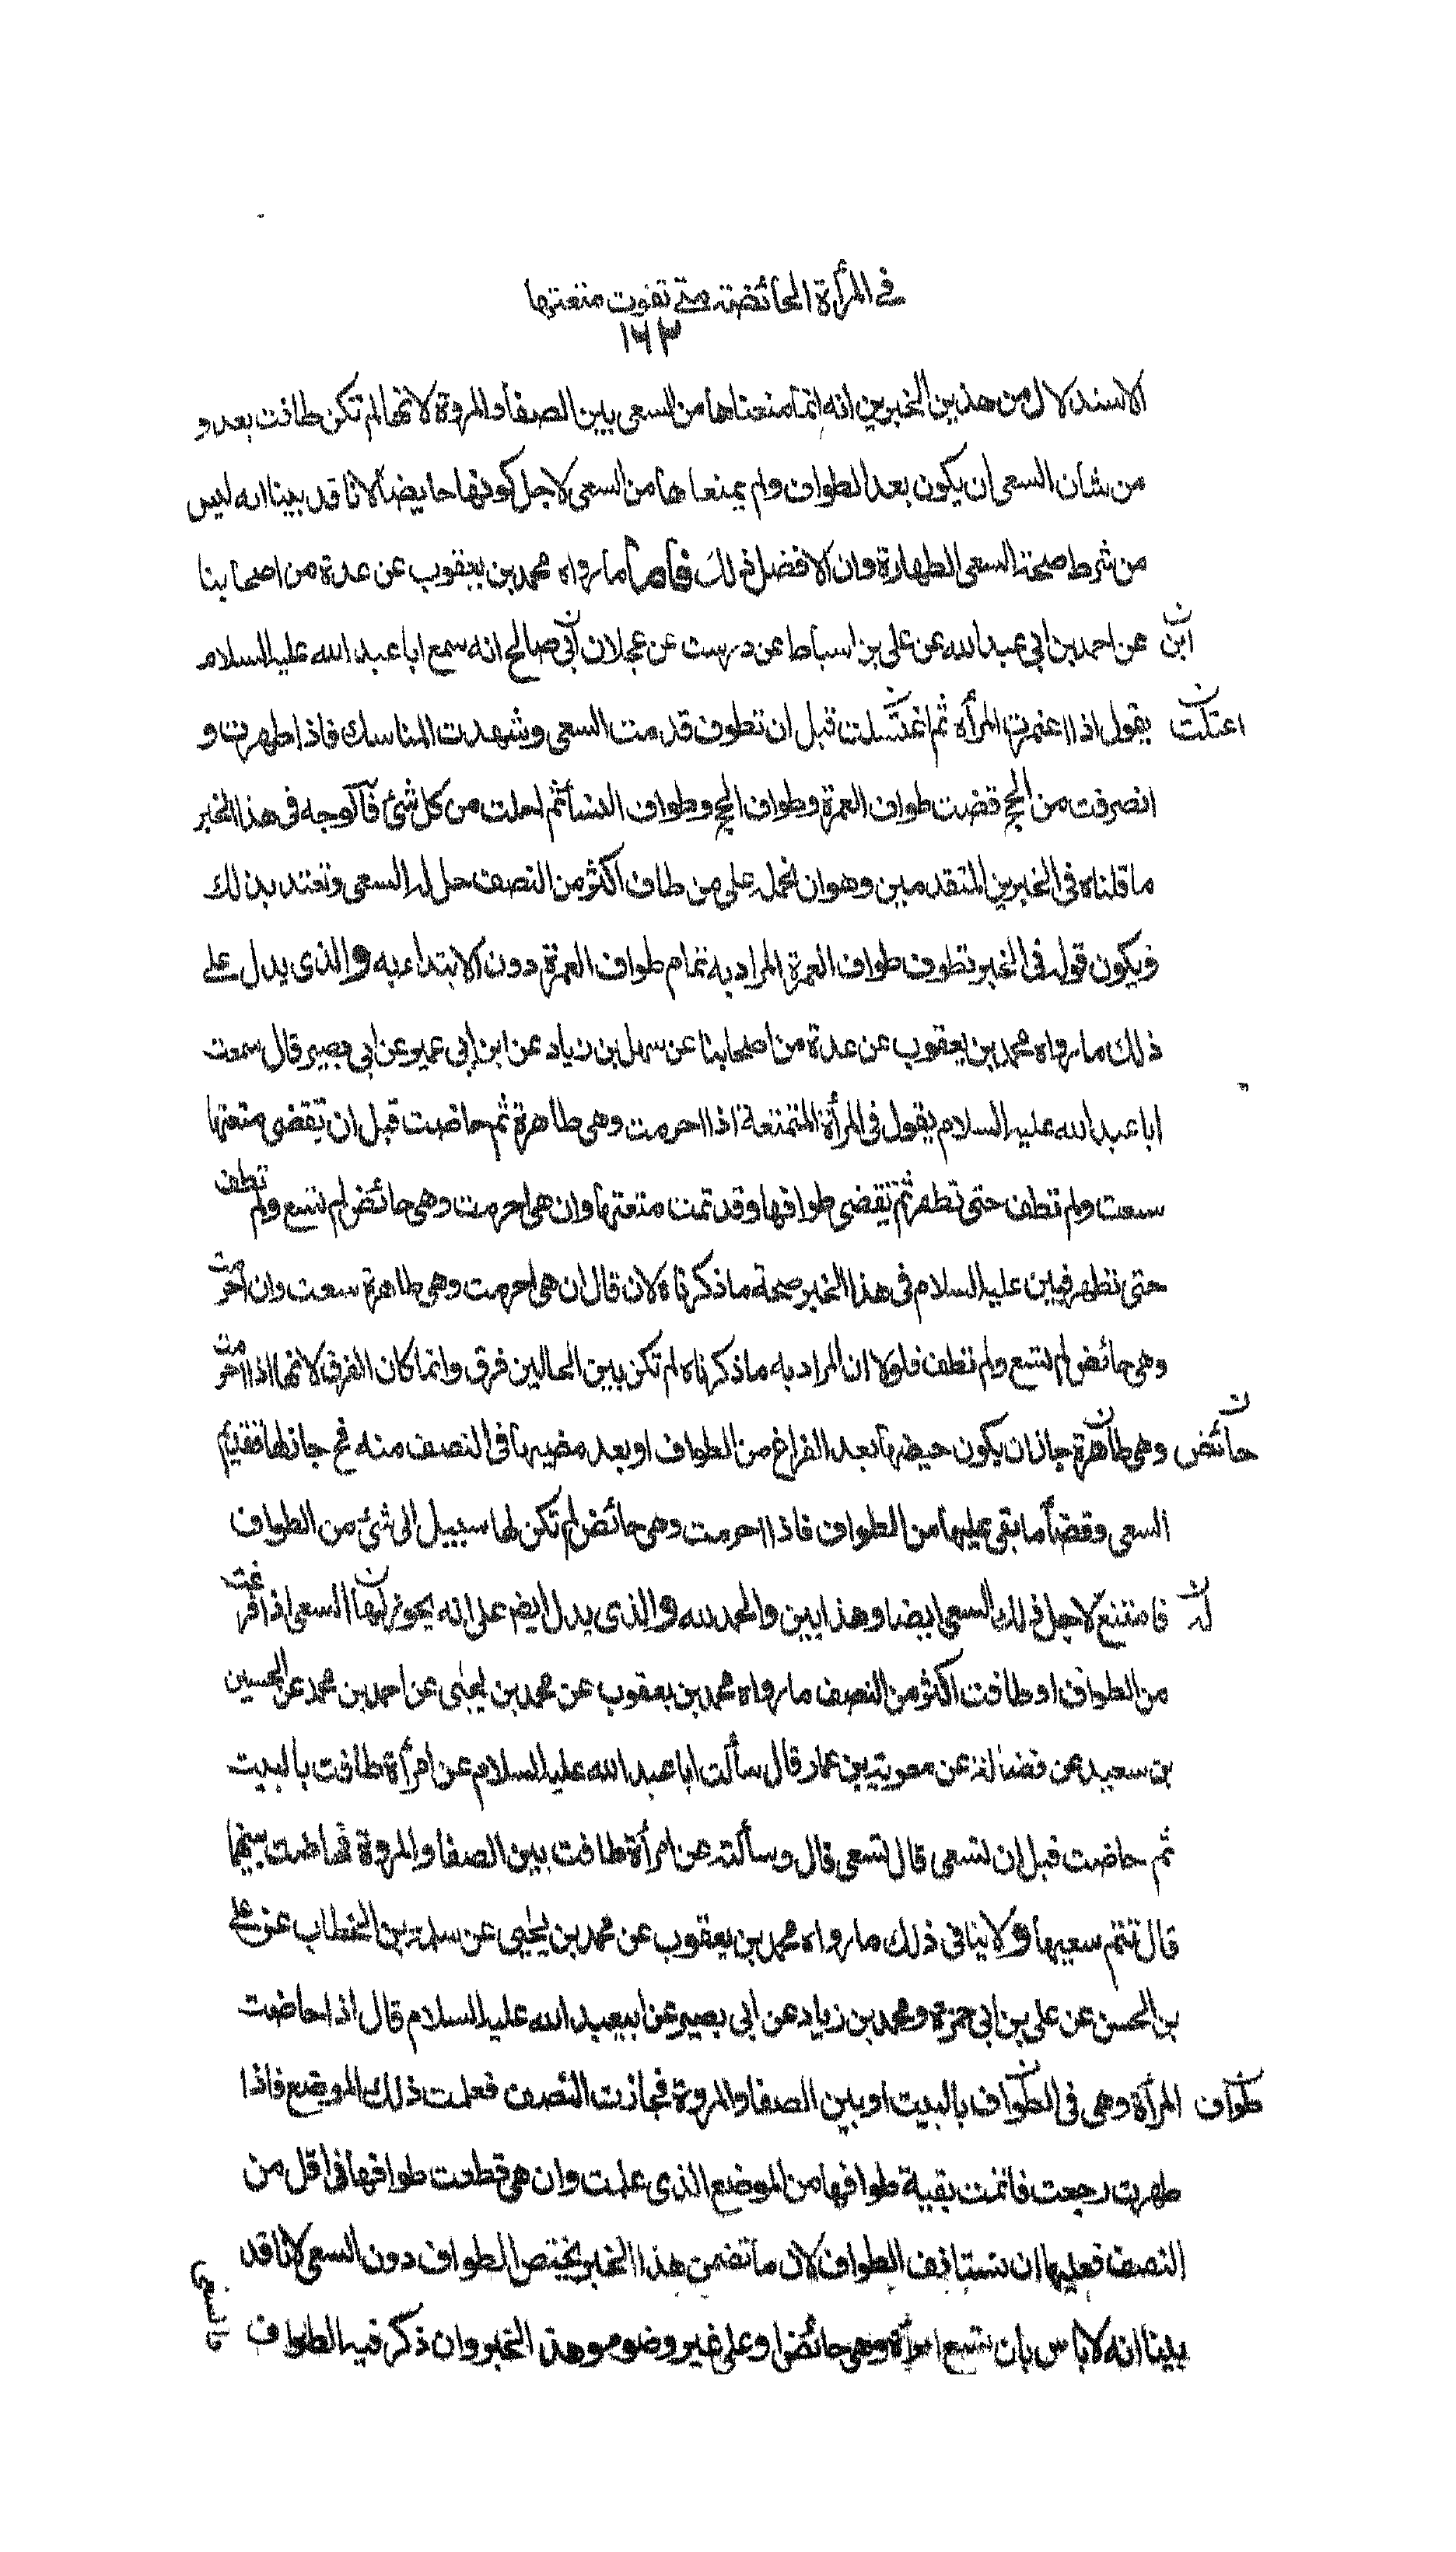 في المرأة الحائضة متى تفوت متعتها
١٦٢
الاستدلال من هذين الخبرين انه انما منعناها من السعى بين الصفا والمروة لانها لم تكن طافت بعد و
من شان السعى ان يكون بعد الطواف ولم يمنعا ها من السعى لاجل كونها حايضا لانا قد بينا انه ليس
من شرط صحة السعى الطهارة وان الافضل ذلك فأما ما رواه محمد بن يعقوب عن عدة من اصحابنا
ابن عن احمد بن ابي عبد الله عن على بن اسباط عن درست عن عجلان ابى صالح انه سمع ابا عبد الله عليه السلام
اعتلت يقول اذا اعتمرت المرأة ثم اغتسلت قبل ان تطوف قدمت السعى وشهدت المناسك فاذا طهرت و
انصرفت من الحج قضت طواف العمرة وطواف الحج وطواف النسأ ثم احلت من كل شئ فالوجه فى هذا الخبر
ما قلناه فى الخبرين المتقدمين وهو ان نحمله على من طاف اكثر من النصف حل له السعى وتعتد بذلك
فيكون قوله فى الخبر تطوف طواف العمرة المراد به تمام طواف العمرة دون الابتداء به والذى يدل على
ذلك ما رواه محمد بن يعقوب عن عدة من اصحابنا عن سهل بن زياد عن ابن ابى عمير عن ابى بصير قال سمعت
ابا عبد الله عليه السلام يقول فى المرأة المتمتعة اذا احرمت وهى طاهرة ثم حاضت قبل ان تقضى متعتها
سعت ولم تطف حتى تطهر ثم تقضى طوافها وقد تمت متعتها وان هى احرمت وهى حائض لم تسع ولم تطف
حتى تطهر فبين عليه السلام فى هذا الخبر صحة ما ذكرناه لان قال ان هى احرمت وهى طاهرة سعت وان احرمت
وهى حائض لم تسع ولم تطف فلولا ان المراد به ما ذكرناه لم تكن بين الحالين فرق وانما كان الفرق لانها اذا احرمت
حائض وهى طاهرة جاز ان يكون حيضها بعد الفراغ من الطواف او بعد مضيها فى النصف منه فح جاز لها تقديم
السعى وقضأ ما بقى عليها من الطواف فاذا احرمت وهى حائض لم تكن لها سبيل الى شئ من الطواف
له فامتنع لاجل ذلك السعى ايضا وهذا بين والحمد لله والذى يدل ايض على انه يجوز لها السعى اذا فرغت
من الطواف او طافت اكثر من النصف ما رواه محمد بن يعقوب عن محمد بن يحيى عن احمد بن محمد عن الحسين
بن سعيد عن فضالة عن معوية بن عمار قال سألت ابا عبد الله عليه السلام عن امرأة طافت بالبيت
ثم حاضت قبل ان تسعى قال تسعى قال وسألته عن امرأة طافت بين الصفا والمروة فحاضت بينهما
قال تتم سعيها ولا ينافى ذلك ما رواه محمد بن يعقوب عن محمد بن يحيى عن سلمة بن الخطاب عن على
بن الحسن عن على بن ابى حمزة ومحمد بن زياد عن ابى بصير عن ابيعبد الله عليه السلام قال اذا حاضت
طواف المرأة وهى فى الطواف بالبيت او بين الصفا والمروة فجازت النصف فعلمت ذلك الموضع فاذا
طهرت رجعت فاتمت بقية طوافها من الموضع الذى علمت وان هى قطعت طوافها فى اقل من
النصف فعليها ان تستانف الطواف لان ما تضمن هذا الخبر يختص الطواف دون السعى لانا قد
بينا انه لا باس بان تسع امرأة وهى حائض او على غير وضوء وهذ الخبر وان ذكر فيه الطواف